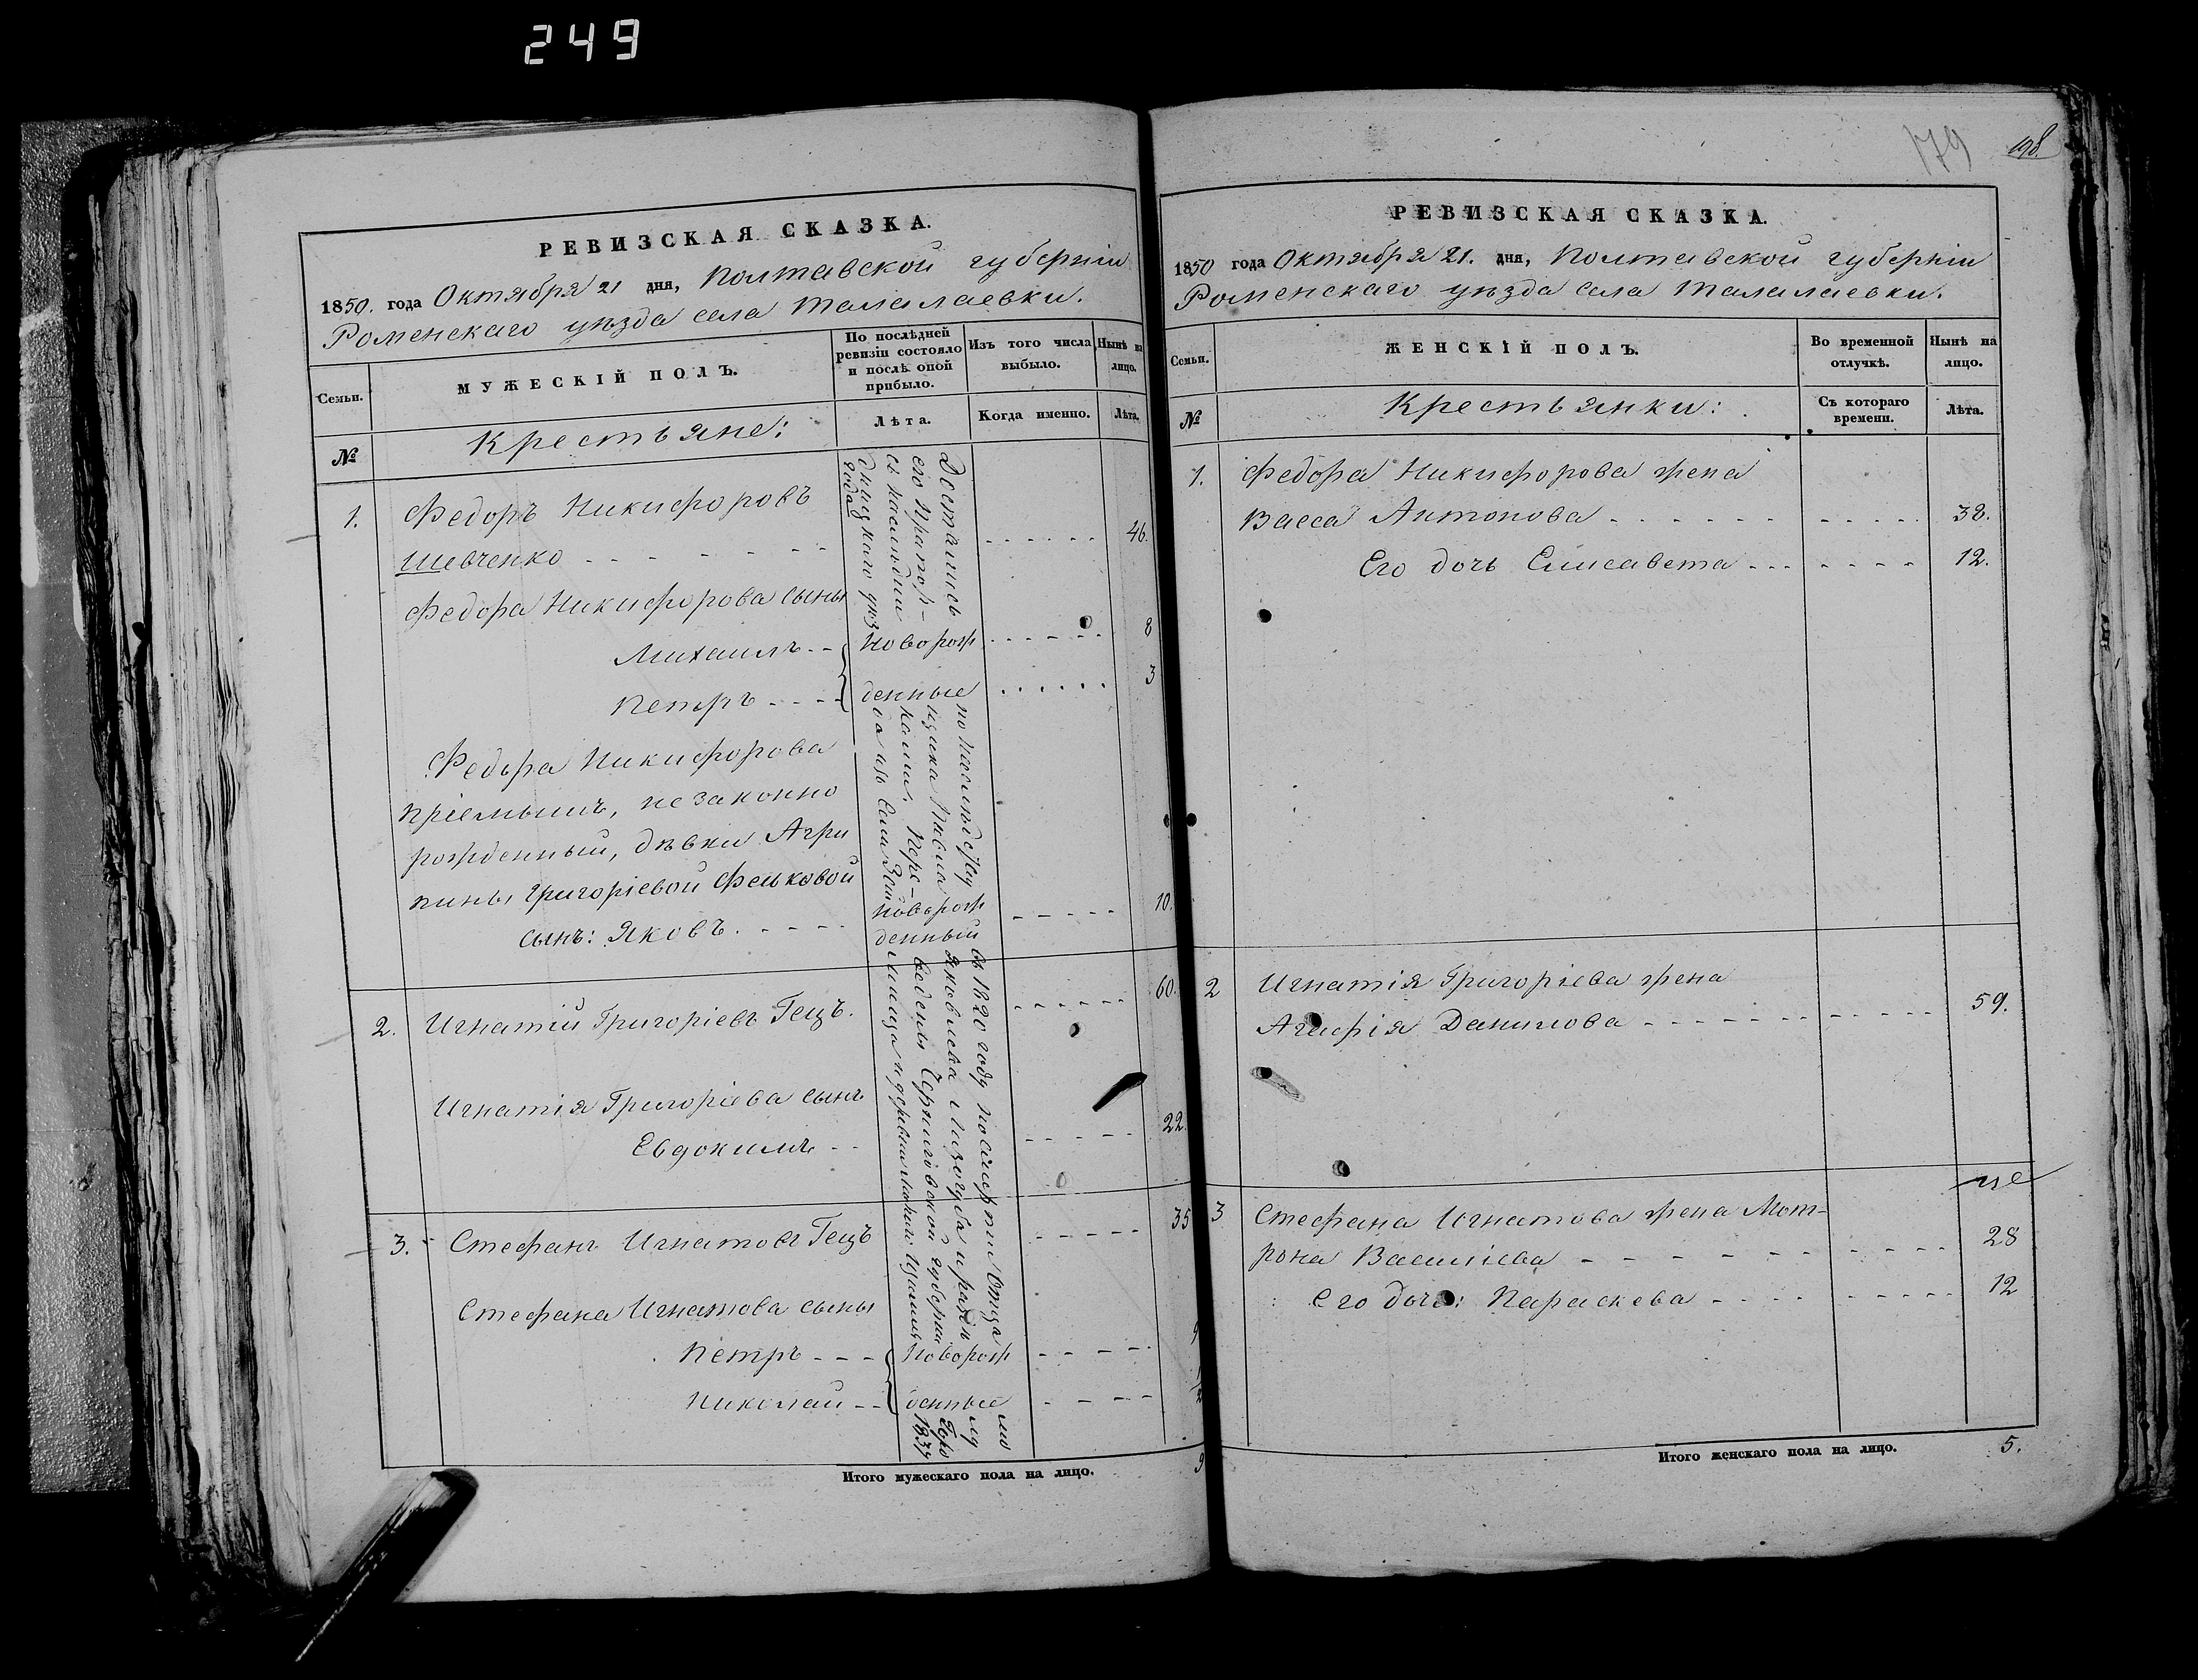 249
РЕВИЗСКАЯ СКАЗКА.
1850. года Октября 21 дня, Полтавской губерніи
Роменскаго уѣзда села Талалаевки.
Семьи.
МУЖЕСКІЙ ПОЛЪ.
По послѣдней ревизіи состояло и послѣ оной прибыло.
Изъ того числа выбыло.
Нынѣ на лицо.
№
Крестьяне:
Лѣта.
Когда именно.
Лѣта.
1. Федоръ Никифоровъ
Шевченко - - - - - - 46.
Федора Никифорова сыны
Михаилъ - - Новорож - - - - - - 8
Петръ - - - - денные - - - - - - 3
Федора Никифорова
пріемышъ, незаконно
рожденный, дѣвки Агри
пины Григоріевой Фельковой
сынъ: Яковъ. - - - - Новорож
денный - - - - - 10.
2. Игнатій Григоріевъ Гецъ. - - - - - - 60.
Игнатія Григоріева сынъ
Евдокимъ - - - - - - - 22.
3. Стефанъ Игнатовъ Гецъ - - - - - 35
Стефана Игнатова сыны
Петръ - - - Новорож - - - - - 9
Николай - - денные - - - - 1/2
Достались по наслѣдству въ 1820 году по смерти Отца
его Прапор-щика Павла Яковлева Лизогуба
Пере-ведены Черниговской губерніи
года
Итого мужескаго пола на лицо. 9
179
198
РЕВИЗСКАЯ СКАЗКА.
1850 года Октября 21. дня, Полтавской губерніи
Роменскаго уѣзда села Талалаевки.
Семьи.
ЖЕНСКІЙ ПОЛЪ.
Во временной отлучкѣ.
Нынѣ на лицо.
№
Крестьянки:
Съ котораго времени.
Лѣта.
1. Федора Никифорова жена
Васса Антонова - - - - - - 38.
Его дочь Елисавета - - - - - - - 12.
2 Игнатія Григоріева жена
Агафія Данилова - - - - - - - 59.
3 Стефана Игнатова жена Мот-
рона Василіева - - - - - - - 28
Его дочь: Параскева - - - - - - - 12
Итого женскаго пола на лицо. 5.